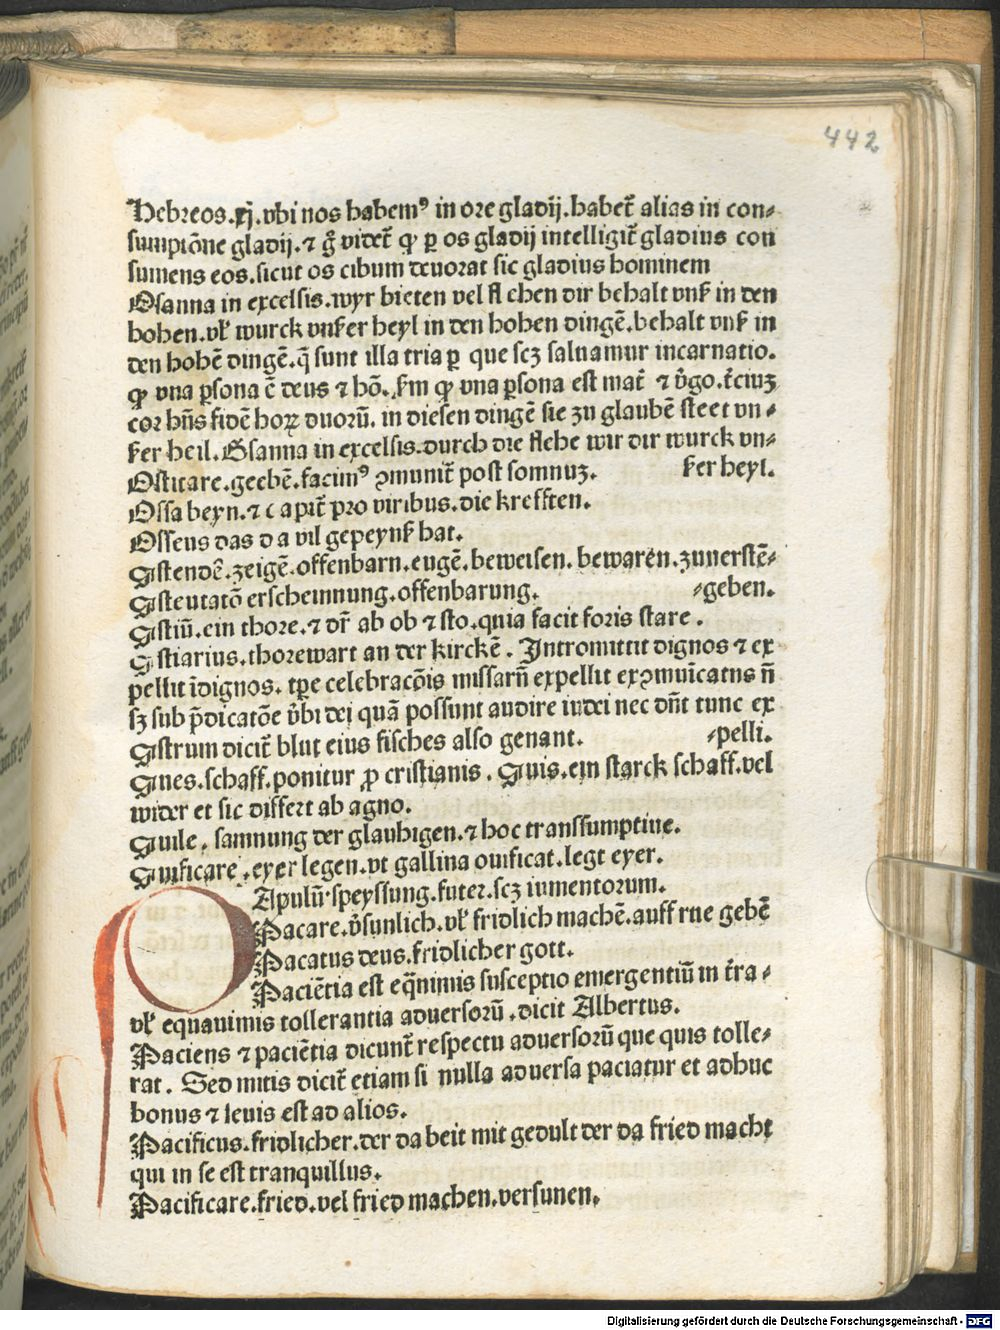 442
Hebreos.xj.vbi nos habemꝰ in ore gladij.habet̄ alias in con⸗
sumptiōne gladij.⁊ g̊ videt̄ ꝙ ꝑ os gladij intelligit̄ gladius con
sumens eos.sicut os cibum deuorat sic gladius hominem
Osanna in excelsis.wyr bieten vel flehen dir behalt vnß in den
hohen.vl̕ wurck vnßer heyl in den hohen dingē.behalt vnß in
den hohē dingē.q̄ sunt illa tria ꝑ que scz saluamur incarnatio.
ꝙ vna ꝑsona ē deus ⁊ hō. ẜm ꝙ vna ꝑsona est mat̄ ⁊ v̊go.t̄ciuz
cor hn̄s fidē hoꝝ duorū. in diesen dingē sie zu glaubē steet vn⸗
ßer heil. Osanna in excelsis.durch die flehe wir dir wurck vn⸗
Oscitare.geebē.facimꝰ ꝯmunit̄ post somnuz. ßer heyl.
Ossa beyn.⁊ capit̄ pro viribus.die krefften.
Osseus das da vil gepeynß hat.
Ostendē.zeigē.offenbarn.eugē.beweisen.bewaren.zuuerstē⸗
Ostentatō erscheinnung.offenbarung. ⸗geben.
Ostiū.ein thore.⁊ dr̄ ab ob ⁊ sto.quia facit foris stare.
Ostiarius.thorewart an der kirckē. Intromittit dignos ⁊ ex
pellit īdignos. tꝑe celebracōis missarū expellit exꝯmuīcatus n̄
sz sub p̄dicatōe v̊bi dei quā possunt audire iudei nec dn̄t tunc ex
Ostrum dicit̄ blut eius fisches also genant. ⸗pelli.
Oues.schaff.ponitur ꝓ cristianis. Ouis.ein starck schaff.vel
wider et sic differt ab agno.
Ouile. samnung der glaubigen.⁊ hoc transsumptiue.
Ouificare.eyer legen.vt gallina ouificat.legt eyer.
PApulū speyssung.futer.scz iumentorum.
Pacare.v̊sunlich.vl̕ fridlich machē.auff rue gebē
Pacatus deus.fridlicher gott.
Paciētia est eq̄nimis susceptio emergentiū in t̄ra⸗
vl̕ equanimis tollerantia aduersorū.dicit Albertus.
Paciens ⁊ paciētia dicunt̄ respectu aduersorū que quis tolle⸗
rat. Sed mitis dicit̄ etiam si nulla aduersa paciatur et adhuc
bonus ⁊ leuis est ad alios.
Pacificus.fridlicher.der da beit mit gedult der da fried macht
qui in se est tranquillus.
Pacificare.fried.vel fried machen.versunen.
Digitalisierung gefördert durch die Deutsche Forschungsgemeinschaft - DFG